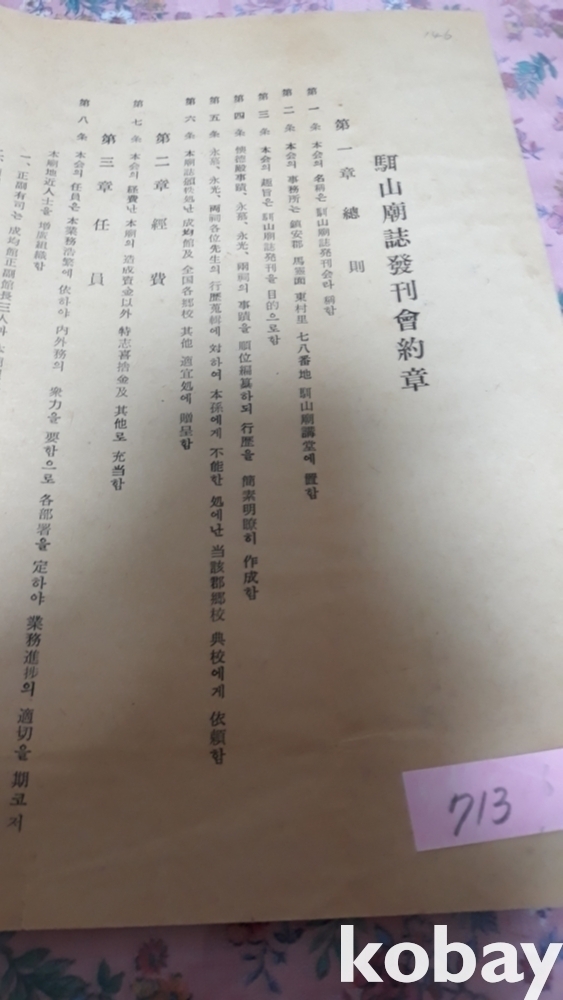 馹山廟誌發刊會約章
第一章 總則
第一条 本会의 名稱은 馹山廟誌発刊会라 稱함
第二条 本会의 事務所는 鎮安郡 馬霊面 東村里 七八番地 馹山廟講堂에 置함
第三条 本会의 趣旨은 馹山廟誌発刊을 目的으로함
第四条 懐徳殿事蹟、永慕、永光、兩祠의 事蹟을 順位編纂하되 行歷을 簡素明瞭히 作成함
第五条 永慕、永光、両祠各位先生의 行歷蒐緝에 対하여 本孫에게 不能한 処에난 当該郡郷校 典校에게 依頼함
第六条 本廟誌頒秩処난 成均館及 全国各郷校 其他 適宜処에 贈呈함
第二章 經費
第七条 本会의 経費난 本廟의 造成資金以外 特志喜捨金及 其他로 充当함
第三章 任員
第八条 本会의 任員은 本業務浩繁에 依하야 内外務의 衆力을 要함으로 各部署을 定하야 業務進捗의 適切을 期코저
本廟地近人士을 増広組織함
一、正副有司는 成均館正副館長三人과
146
713
kobay